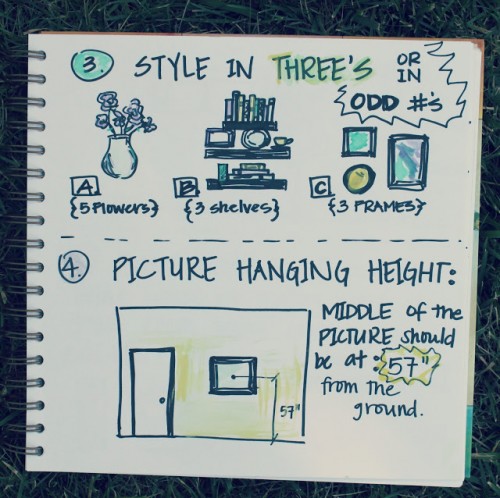 3. STYLE IN THREE'S OR IN ODD #'s
A B C
{5 Flowers} {3 shelves} {3 FRAMES}
4. PICTURE HANGING HEIGHT:
MIDDLE of the
PICTURE should
be at : 57"
from the
ground.
57"